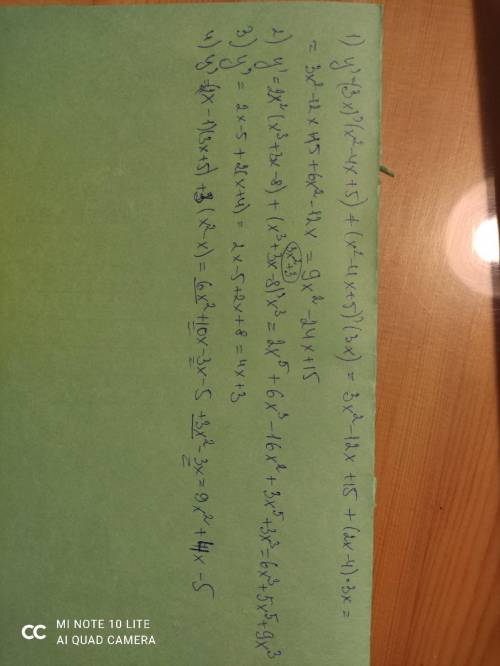 1) y' = (3x)'(x²-4x+5) + (x²-4x+5)'(3x) = 3x²-12x+15 + (2x-4)·3x =
= 3x²-12x+15+6x²-12x = 9x²-24x+15
2) y' = 2x²(x³+3x-8) + (x³+3x-8)'x³ = 2x⁵+6x³-16x²+3x⁵+3x³ = 6x³+5x⁵+9x³
3x²+3
3) y' = 2x-5+2(x+4) = 2x-5+2x+8 = 4x+3
4) y' = (2x-1)(3x+5)+3(x²-x) = 6x²+10x-3x-5+3x²-3x = 9x²+4x-5
MI NOTE 10 LITE
AI QUAD CAMERA